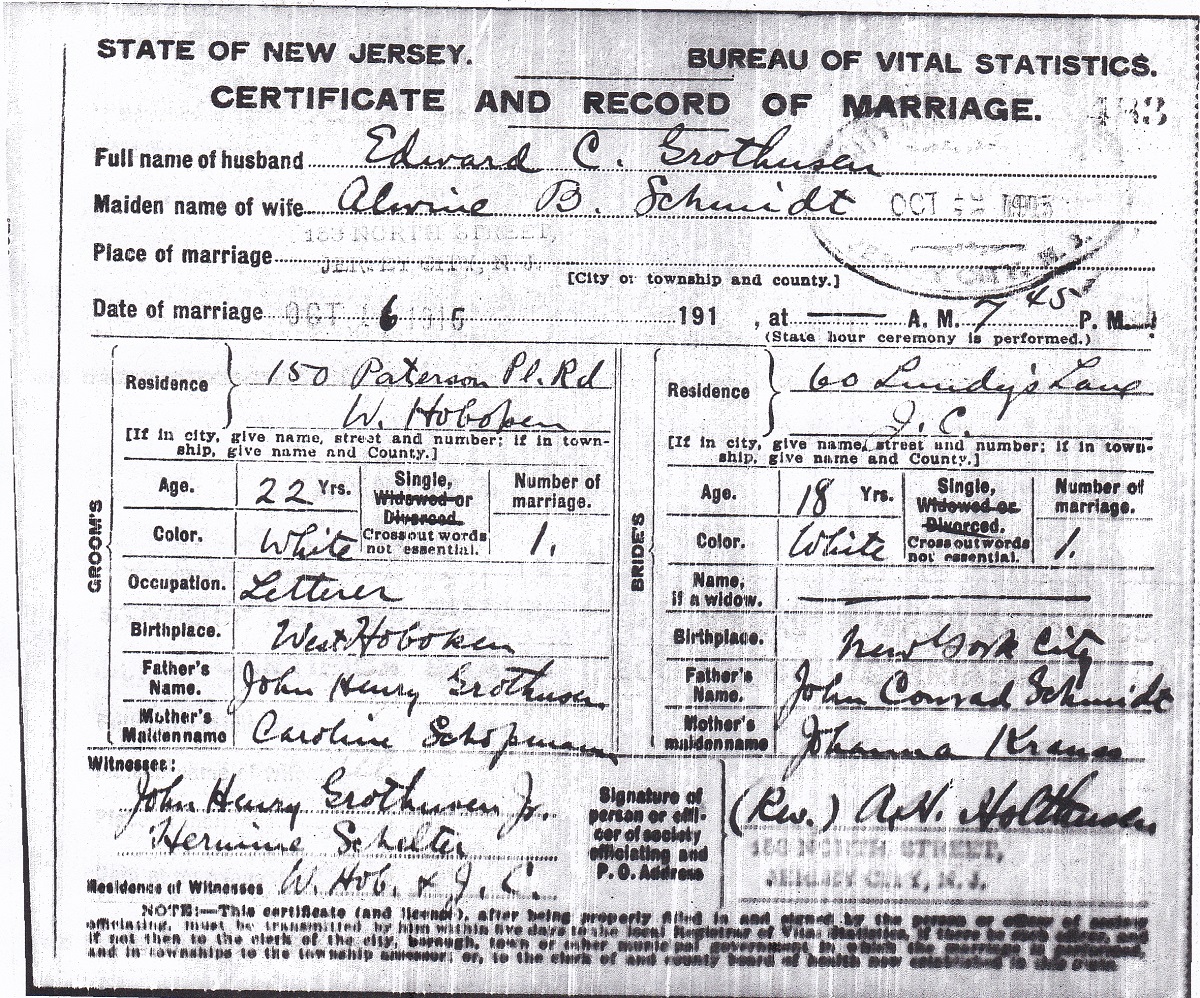 STATE OF NEW JERSEY. BUREAU OF VITAL STATISTICS.
CERTIFICATE AND RECORD OF MARRIAGE. 483
Full name of husband Edward C. Grothusen
Maiden name of wife Alwine B. Schmidt OCT
159 NORTH STREET,
Place of marriage JERSEY CITY, N. J.
[City or township and county.]
Date of marriage OCT 6 191 , at — A. M. 7 45 P. M.
(State hour ceremony is performed.)
GROOM'S
Residence 150 Paterson Pl. Rd
W. Hoboken
[If in city, give name, street and number; if in town-
ship, give name and County.]
Age. 22 Yrs. Single, Widowed or Divorced. Number of marriage.
Color. White Cross out words not essential. 1.
Occupation. Letterer
Birthplace. West Hoboken
Father's Name. John Henry Grothusen
Mother's Maiden name Caroline Schopmann
BRIDE'S
Residence 60 Lundy's Lane
J. C.
[If in city, give name, street and number; if in town-
ship, give name and County.]
Age. 18 Yrs. Single, Widowed or Divorced. Number of marriage.
Color. White Cross out words not essential. 1.
Name, if a widow. —
Birthplace. New York City
Father's Name. John Conrad Schmidt
Mother's maiden name Johanna Krauss
Witnesses:
John Henry Grothusen Jr.
Hermine Schelter
Residence of Witnesses W. Hob. & J. C.
Signature of
person or offi-
cer of society
officiating and
P. O. Address
(Rev.) A. H. Holthusen
159 NORTH STREET,
JERSEY CITY, N. J.
NOTE:—This certificate (and license), after being properly filled in and signed by the person or officer of society
officiating, must be transmitted by him within five days to the local Registrar of Vital Statistics, if there be such officer, and
if not then to the clerk of the city, borough, town or other municipal government in which the marriage is performed,
and in townships to the township assessor; or, to the clerk of and county board of health now established in this state.